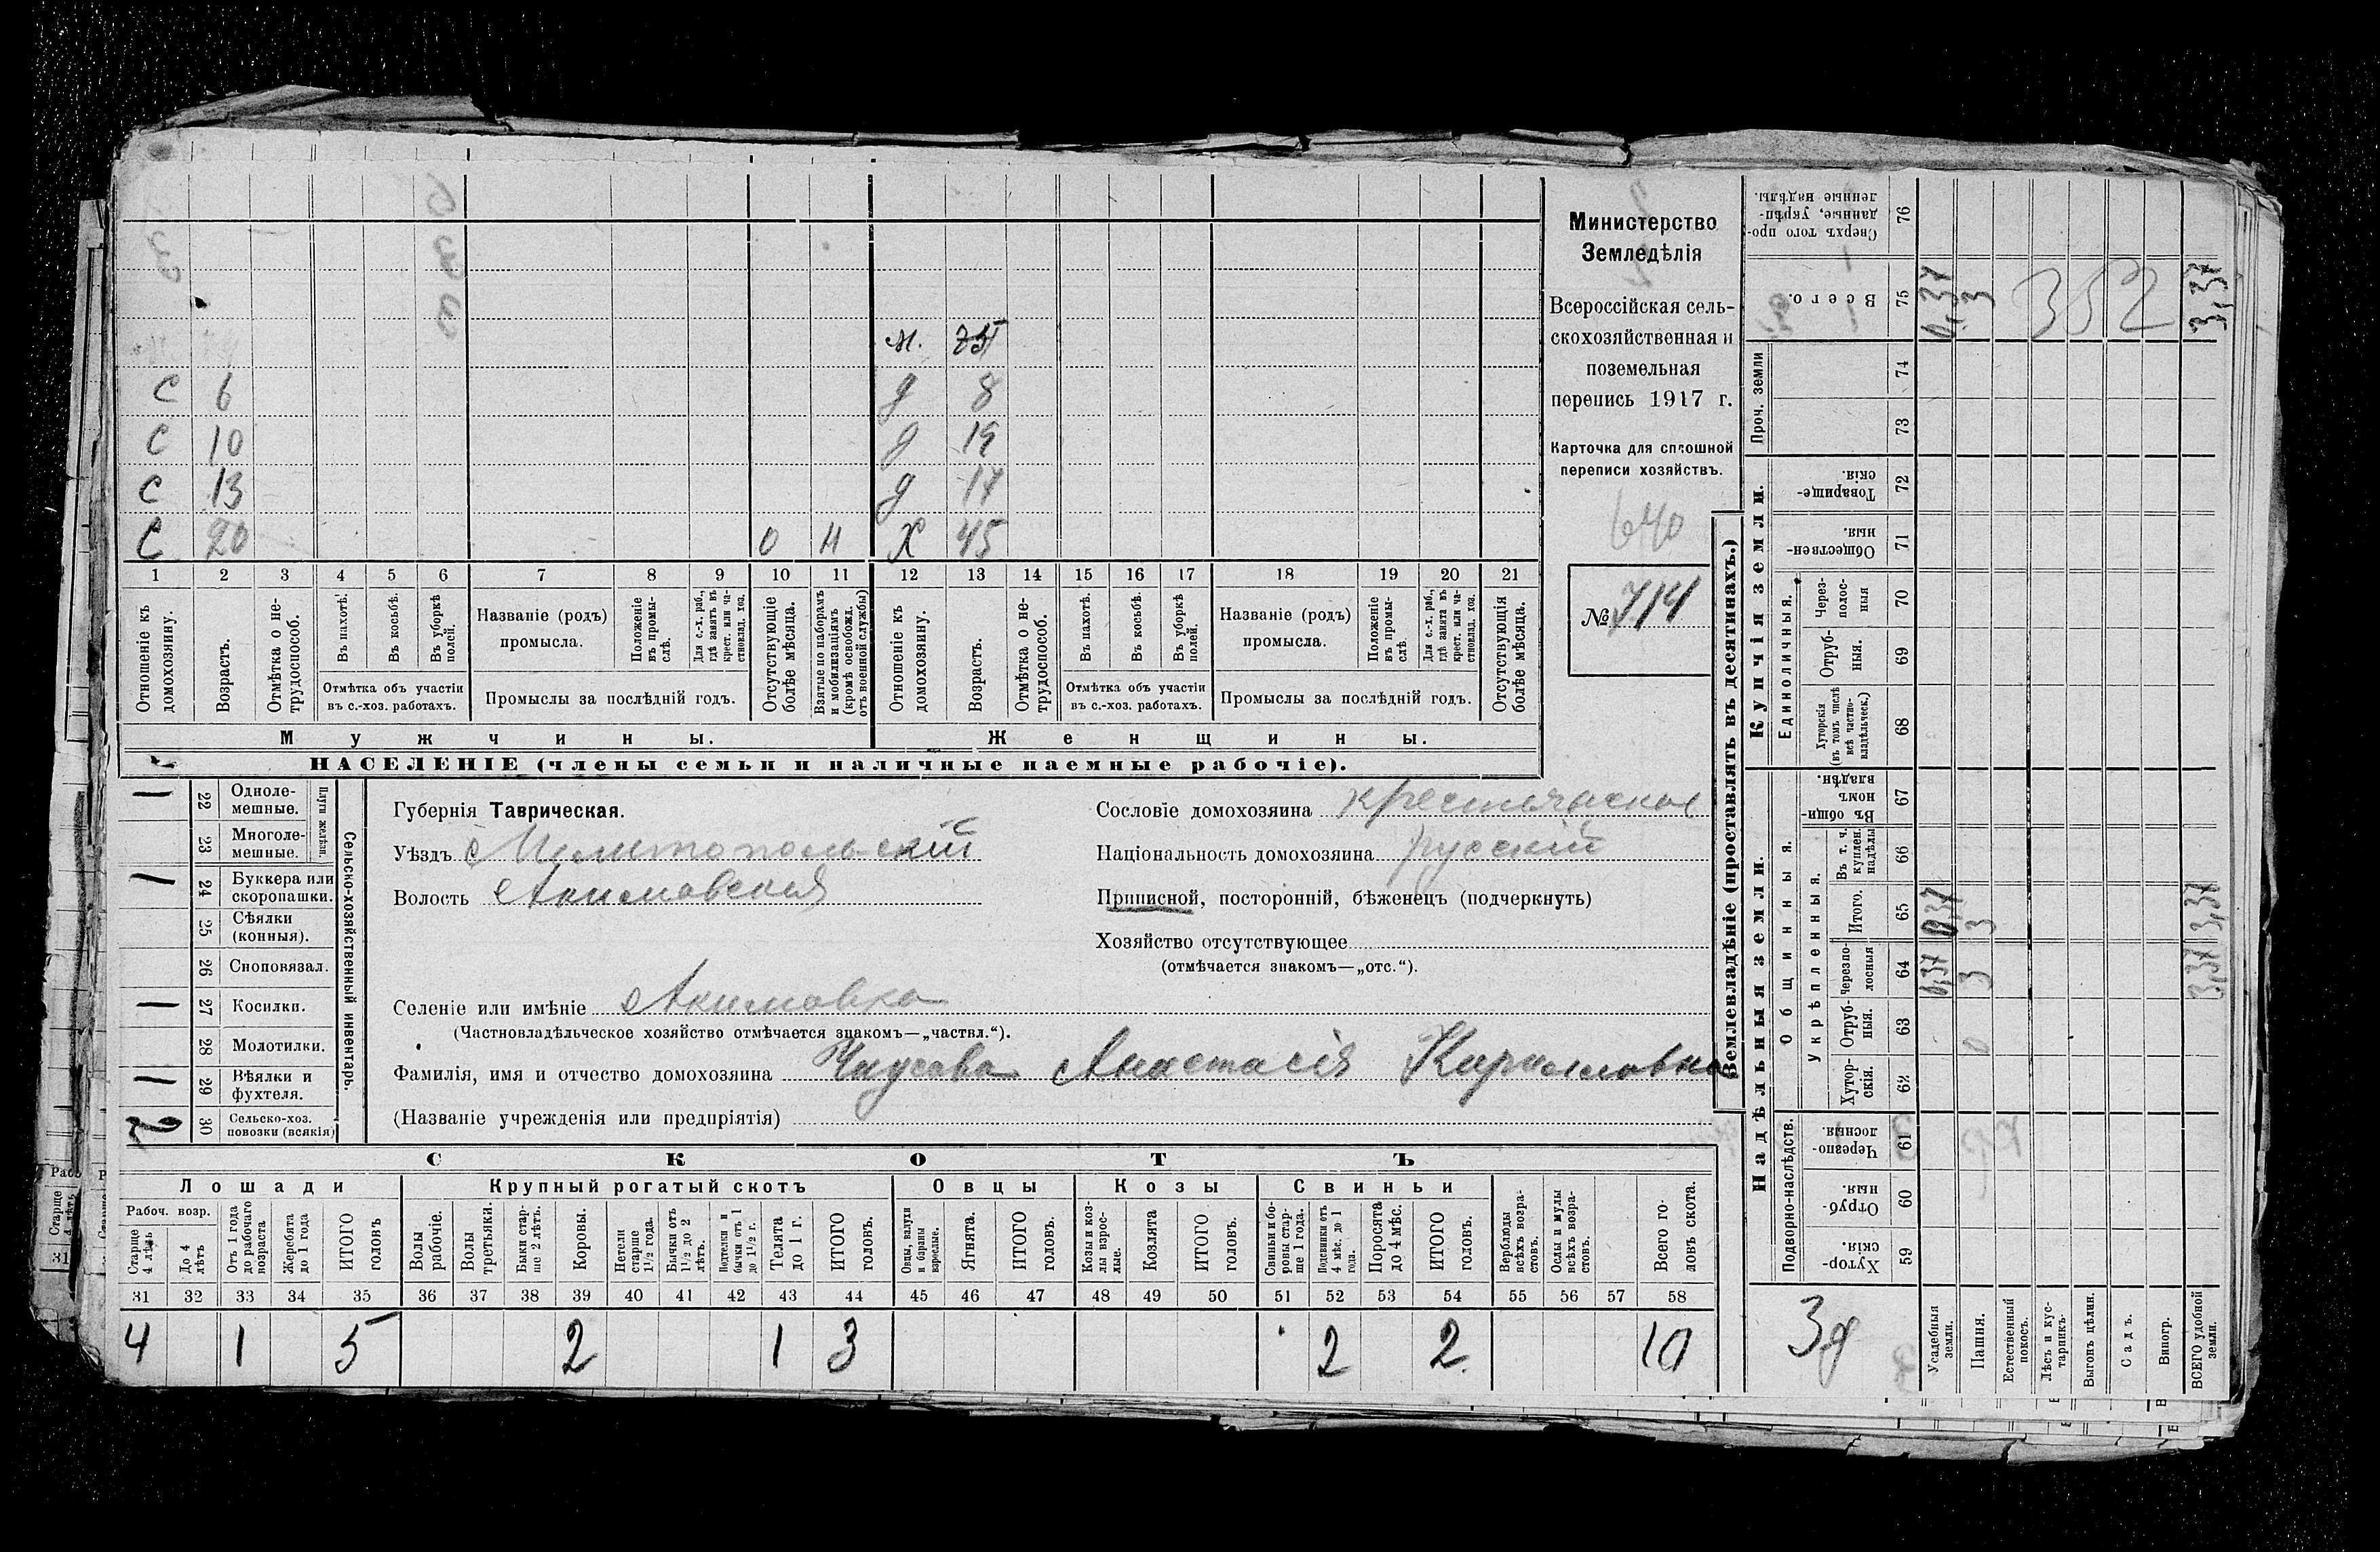 м. 75
С 6 д 8
С 10 д 19
С 13 д 17
С 20 0 Н Х 45
1 2 3 4 5 6 7 8 9 10 11 12 13 14 15 16 17 18 19 20 21
Отношеніе къ домохозяину.
Возрастъ.
Отмѣтка о нетрудоспособ.
Въ пахотѣ.
Въ косьбѣ.
Въ уборкѣ полей.
Отмѣтка объ участіи въ с.-хоз. работахъ.
Названіе (родъ) промысла.
Положеніе въ промыслѣ.
Для с.-х. раб., гдѣ занятъ въ крест. или частновлад. хоз.
Промыслы за послѣдній годъ.
Отсутствующіе болѣе мѣсяца.
Взятые по наборамъ и мобилизаціямъ (кромѣ освобожд. отъ военной службы)
Отношеніе къ домохозяину.
Возрастъ.
Отмѣтка о нетрудоспособ.
Въ пахотѣ.
Въ косьбѣ.
Въ уборкѣ полей.
Отмѣтка объ участіи въ с.-хоз. работахъ.
Названіе (родъ) промысла.
Положеніе въ промыслѣ
Для с.-х. раб., гдѣ занята въ крест. или частновлад. хоз.
Промыслы за послѣдній годъ.
Отсутствующія болѣе мѣсяца.
Мужчины. Женщины.
НАСЕЛЕНІЕ (члены семьи и наличные наемные рабочіе).
Министерство
Земледѣлія
Всероссійская сель-
скохозяйственная и
поземельная
перепись 1917 г.
Карточка для сплошной
переписи хозяйствъ.
640
№ 714
Сельско-хозяйственный инвентарь.
Плуги желѣзн.
1 22 Одноле-мешные.
23 Многоле-мешные.
1 24 Буккера или скоропашки.
25 Сѣялки (конныя).
26 Сноповязал.
1 27 Косилки.
28 Молотилки.
1 29 Вѣялки и фухтеля.
2 30 Сельско-хоз. повозки (всякія)
Губернія Таврическая.
Уѣздъ Мелитопольскій
Волость Акимовская
Сословіе домохозяина крестьянское
Національность домохозяина русскій
Приписной, посторонній, бѣженецъ (подчеркнуть)
Хозяйство отсутствующее
(отмѣчается знакомъ—„отс.“).
Селеніе или имѣніе Акимовка
(Частновладѣльческое хозяйство отмѣчается знакомъ—„частвл.“).
Фамилія, имя и отчество домохозяина Анастасія Кирилловна
(Названіе учрежденія или предпріятія)
СКОТЪ
Лошади Крупный рогатый скотъ Овцы Козы Свиньи
Рабоч. возр.
Старше 4 лѣтъ
До 4 лѣтъ
Отъ 1 года до рабочаго возраста
Жеребята до 1 года
ИТОГО головъ
Волы рабочіе.
Волы третьяки.
Быки старше 2 лѣтъ.
Коровы.
Нетели старше 1½ года.
Бычки отъ 1½ до 2 лѣтъ.
Подтелки и бычки отъ 1 до 1½ г.
Телята до 1 г.
ИТОГО головъ.
Овцы, валухи и бараны взрослые.
Ягнята.
ИТОГО головъ.
Козы и козлы взрослые.
Козлята
ИТОГО головъ.
Свиньи и боровы старше 1 года.
Подсвинки отъ 4 мѣс. до 1 года.
Поросята до 4 мѣс.
ИТОГО головъ.
Верблюды всѣхъ возрастовъ.
Ослы и мулы всѣхъ возрастовъ.
Всего головъ скота.
31 32 33 34 35 36 37 38 39 40 41 42 43 44 45 46 47 48 49 50 51 52 53 54 55 56 57 58
4 1 5 2 1 3 2 2 10
Землевладѣніе (проставлять въ десятинахъ.)
Надѣльныя земли. Купчія земли. Проч. земли
Подворно-наслѣдств.
Общинныя.
Укрѣпленныя.
Единоличныя.
Сверхъ того проданные, укрѣпленные надѣлы. 76
Всего. 75 0,37 3 352 3,37
74
73
Товарищескія. 72
Общественныя. 71
Черезполосныя 70
Отрубныя. 69
Хуторскія (въ томъ числѣ всѣ частновладѣльческ.) 68
Въ общинномъ владѣн. 67
Въ т. ч. куплен. надѣлы 66
Итого. 65 0,37 3 3,37
Черезполосныя 64 0,37 3 3,37
Отрубныя. 63
Хуторскія. 62
Черезполосныя. 61
Отрубныя. 60
Хуторскія. 59
3д
Усадебныя земли.
Пашня.
Естественный покосъ.
Лѣсъ и кустарникъ.
Выгонъ цѣлин.
Садъ.
Виногр.
ВСЕГО удобной земли.